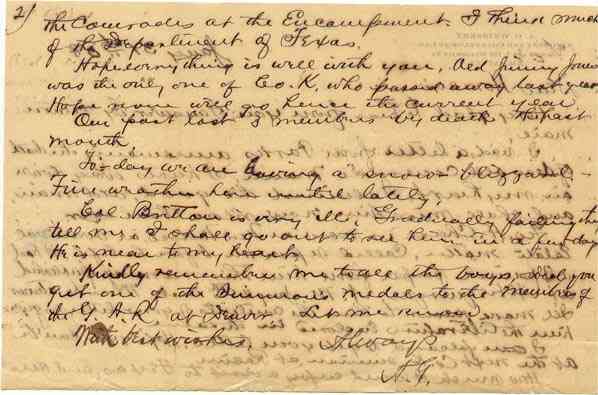 2/
the Comrades at the Encampment. I think much
of the Department of Texas.
Hope every thing is well with you. Old Jimmy Jones
was the only one of Co. K. who passed away last year,
Hope none will go hence the current year
Our post lost 3 members by death the past
month.
To-day we are having a snow blizzard -
Fine weather here until lately,
Col. Britton is very ill. Gradually failing they
tell me. I shall go out to see him in a few days
He is near to my heart,
Kindly remember me to all the boys, Did you
get one of the Souvenir medals to the members of
the G. A. R. at Denver. Let me know
With best wishes, Always